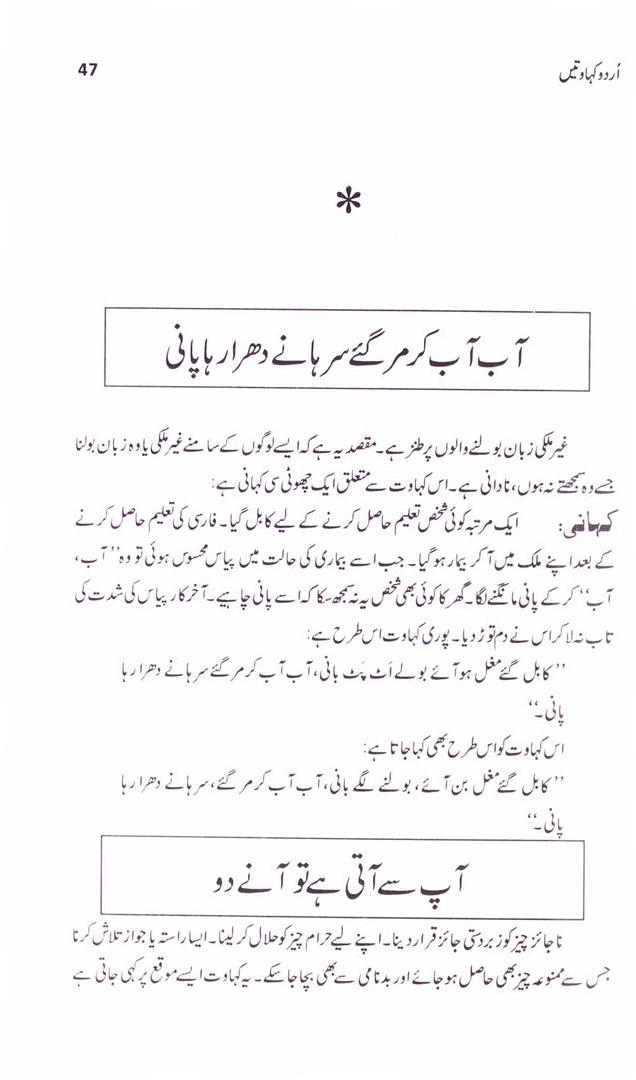 اُردو کہاوتیں 47
*
آب آب کر مر گئے سرہانے دھرا رہا پانی
غیر ملکی زبان بولنے والوں پر طنز ہے۔ مقصد یہ ہے کہ ایسے لوگوں کے سامنے غیر ملکی یا وہ زبان بولنا
جسے وہ سمجھتے نہ ہوں، نادانی ہے۔ اس کہاوت سے متعلق ایک چھوٹی سی کہانی ہے:
کہانی: ایک مرتبہ کوئی شخص تعلیم حاصل کرنے کے لیے کابل گیا۔ فارسی کی تعلیم حاصل کرنے
کے بعد اپنے ملک میں آ کر بیمار ہو گیا۔ جب اسے بیماری کی حالت میں پیاس محسوس ہوئی تو وہ ’’آب،
آب‘‘ کر کے پانی مانگنے لگا۔ گھر کا کوئی بھی شخص یہ نہ سمجھ سکا کہ اسے پانی چاہیے۔ آخر کار پیاس کی شدت کی
تاب نہ لا کر اس نے دم توڑ دیا۔ پوری کہاوت اس طرح ہے:
’’کابل گئے مغل ہو آئے بولے اَٹ پَٹ بانی، آب آب کر مر گئے سرہانے دھرا رہا
پانی۔‘‘
اس کہاوت کو اس طرح بھی کہا جاتا ہے:
’’کابل گئے مغل بن آئے، بولنے لگے بانی، آب آب کر مر گئے، سرہانے دھرا رہا
پانی۔‘‘
آپ سے آتی ہے تو آنے دو
ناجائز چیز کو زبردستی جائز قرار دینا۔ اپنے لیے حرام چیز کو حلال کر لینا۔ ایسا راستہ یا جواز تلاش کرنا
جس سے ممنوعہ چیز بھی حاصل ہو جائے اور بدنامی سے بھی بچا جا سکے۔ یہ کہاوت ایسے موقع پر کہی جاتی ہے